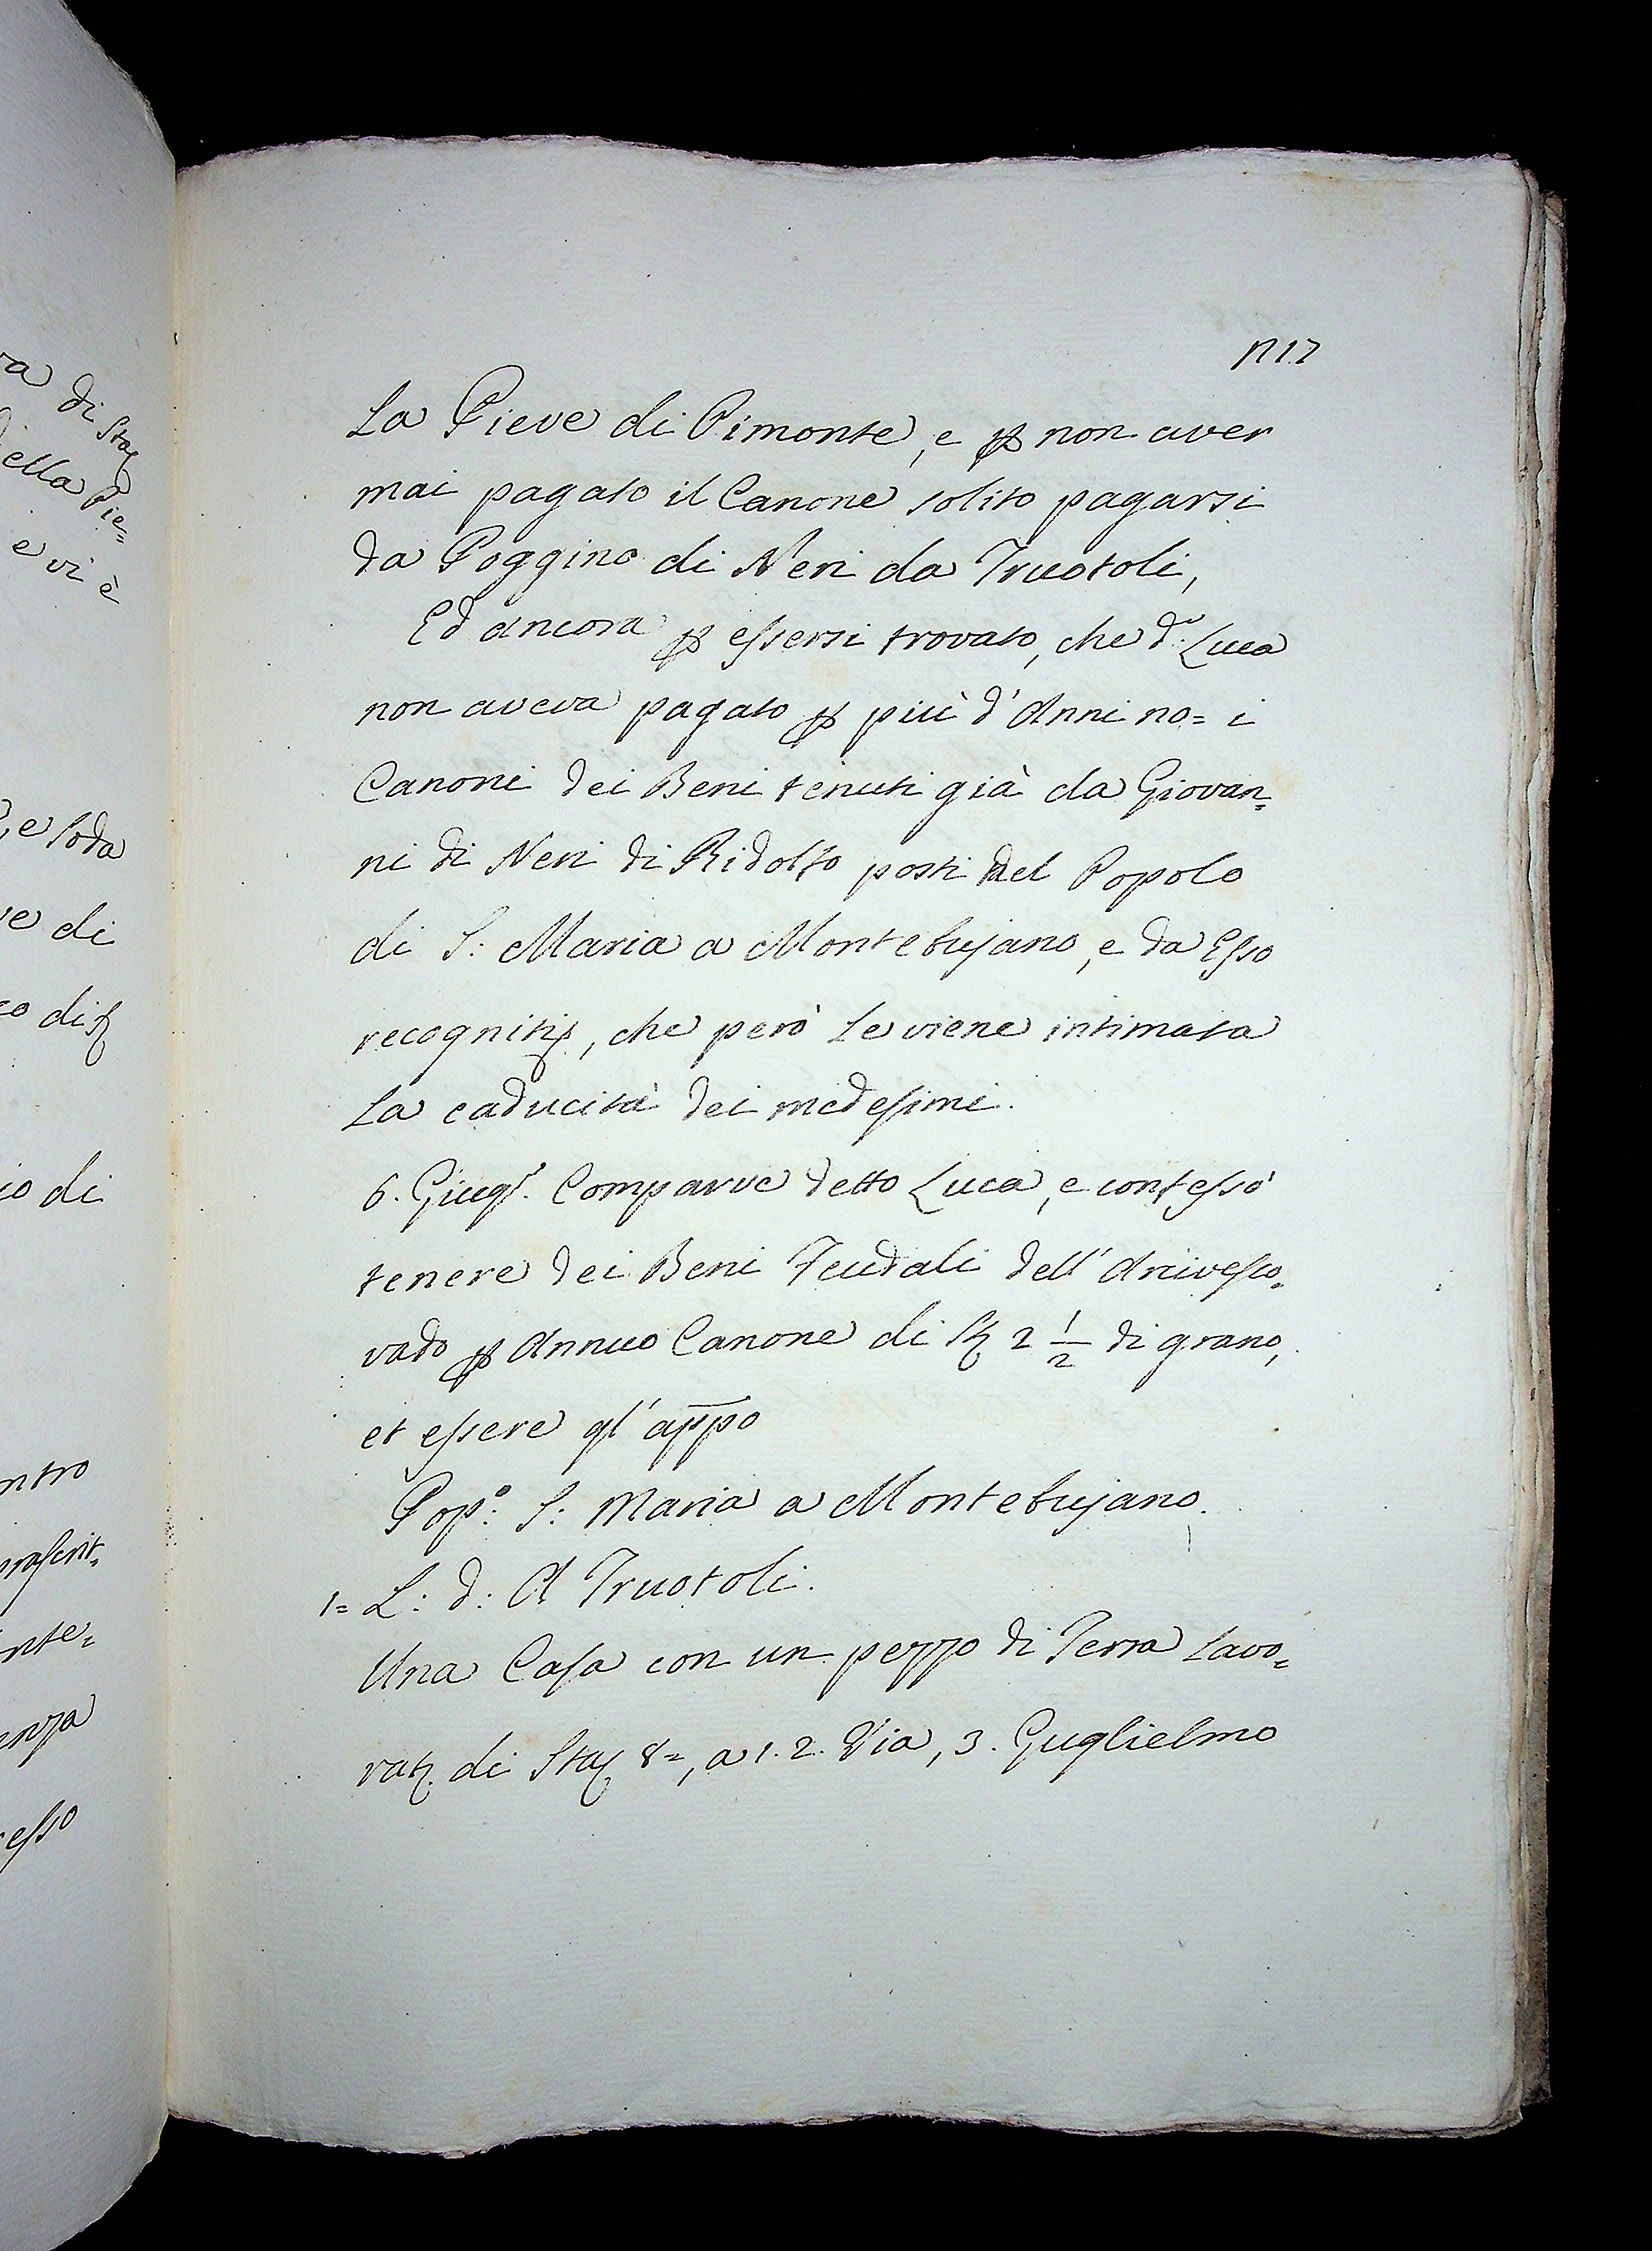 ra di Sta
ella Pie=
e vi è
, e soda
ve di
co di
io di
ntro
nte=
enza
esso
1717
La Pieve di Pimonte, e ꝑ non aver
mai pagato il Canone solito pagarsi
da Poggino di Neri da Truotoli,
Ed ancora ꝑ essersi trovato, che d.º Luca
non aveva pagato ꝑ più d'Anni no= i
Canoni dei Beni tenuti già da Giovan=
ni di Neri di Ridolfo posti del Popolo
di S: Maria a Montebujano, e da Esso
recogniti, che però le viene intimata
La caducità dei medesimi.
6. Giug.º Comparve detto Luca, e confessò
tenere dei Beni Feudali dell'Arcivesco=
vado ꝑ Annuo Canone di St 2 1/2 di grano,
et essere gl'app̄o
Pop.º: S: Maria a Montebujano.
1= L: d: A Truotoli.
Una Casa con un pezzo di Terra Lavo=
rat. di Sta 8=, a 1. 2. Via, 3. Guglielmo